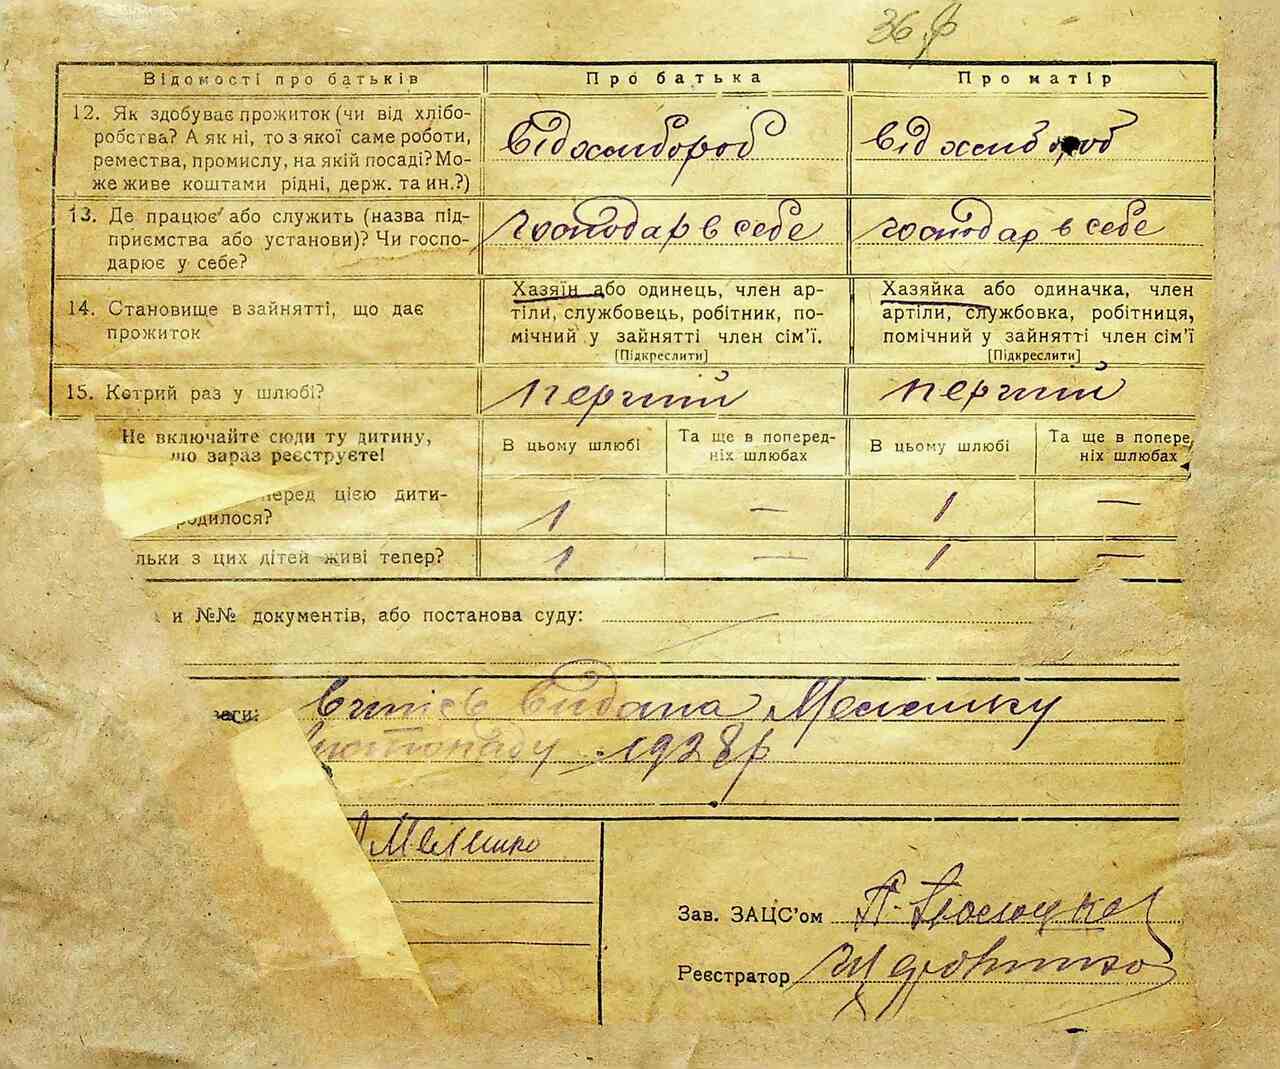 36
Відомості про батьків
Про батька
Про матір
12. Як здобуває прожиток (чи від хлібо-
робства? А як ні, то з якої саме роботи,
ремества, промислу, на якій посаді? Мо-
же живе коштами рідні, держ. та ин.?)
від хлибороб
від хлибороб
13. Де працює або служить (назва під-
приємства або установи)? Чи госпо-
дарює у себе?
господар в себе
господар в себе
14. Становище в зайнятті, що дає
прожиток
Хазяїн або одинець, член ар-
тілі, службовець, робітник, по-
мічний у зайнятті член сім'ї.
[Підкреслити]
Хазяйка або одиначка, член
артілі, службовка, робітниця,
помічний у зайнятті член сім'ї
[Підкреслити]
15. Котрий раз у шлюбі?
перший
перший
Не включайте сюди ту дитину,
що зараз реєструєте!
В цьому шлюбі
Та ще в поперед-
ніх шлюбах
В цьому шлюбі
Та ще в попере
ніх шлюбах
перед цією дити-
родилося?
1
—
1
—
льки з цих дітей живі тепер?
1
—
1
—
и №№ документів, або постанова суду:
ваги:
видана
листопаду 1928 р
Мелешко
Зав. ЗАЦС'ом
Реєстратор